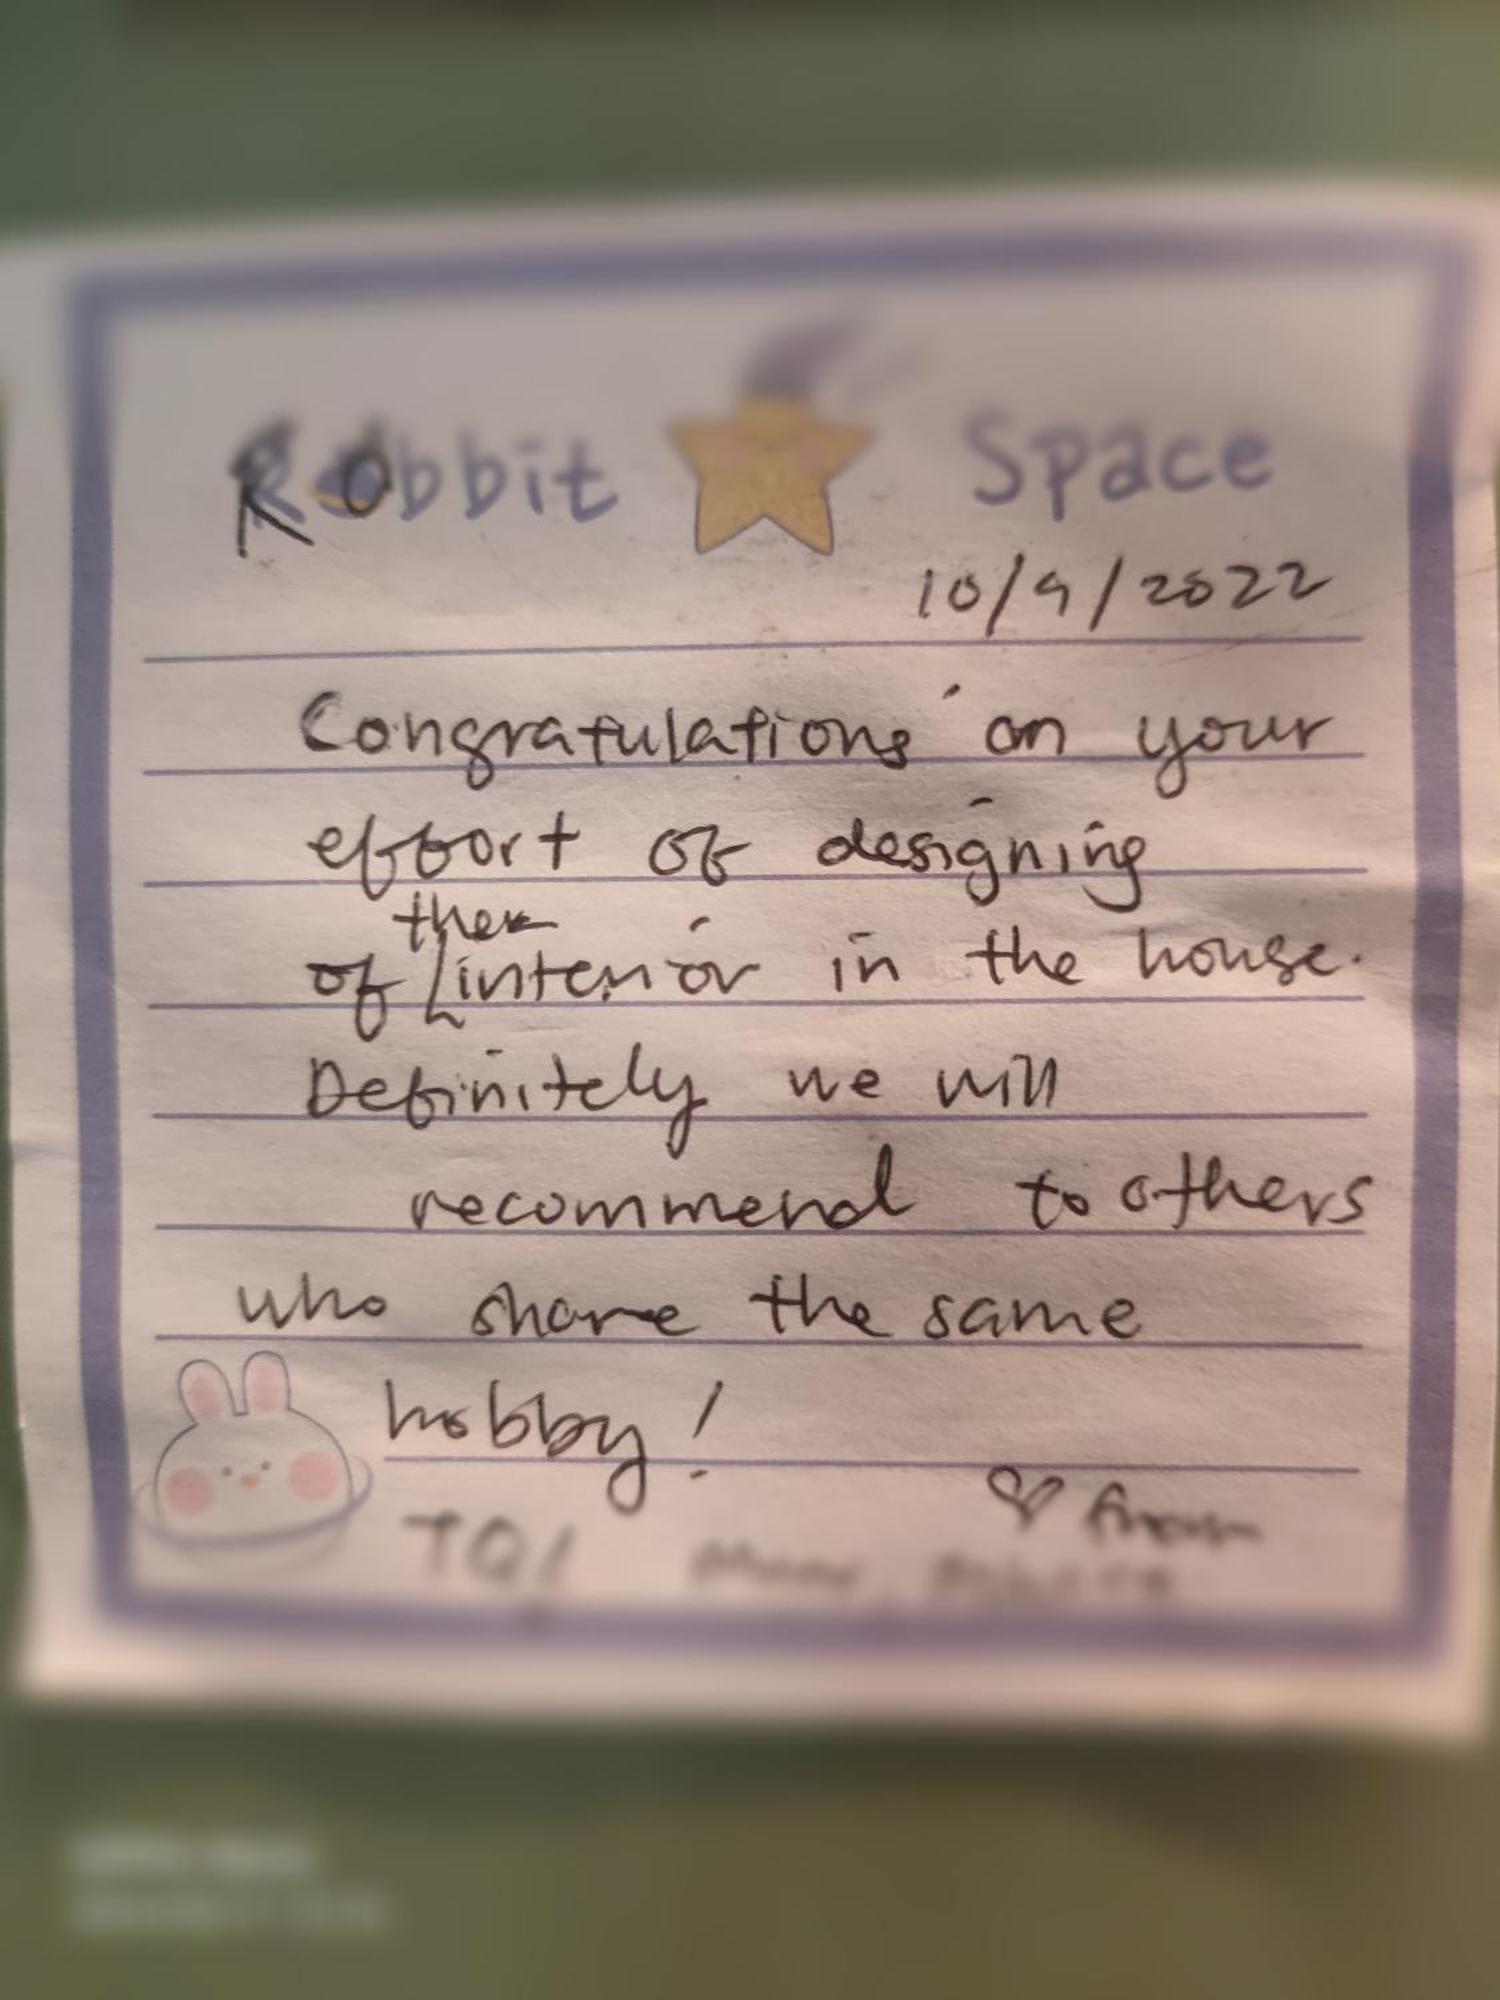 Robbit Space
10/9/2022
Congratulations on your
effort of designing
the
of interior in the house.
Definitely we will
recommend to others
who share the same
hobby!
♡ from
TQ!